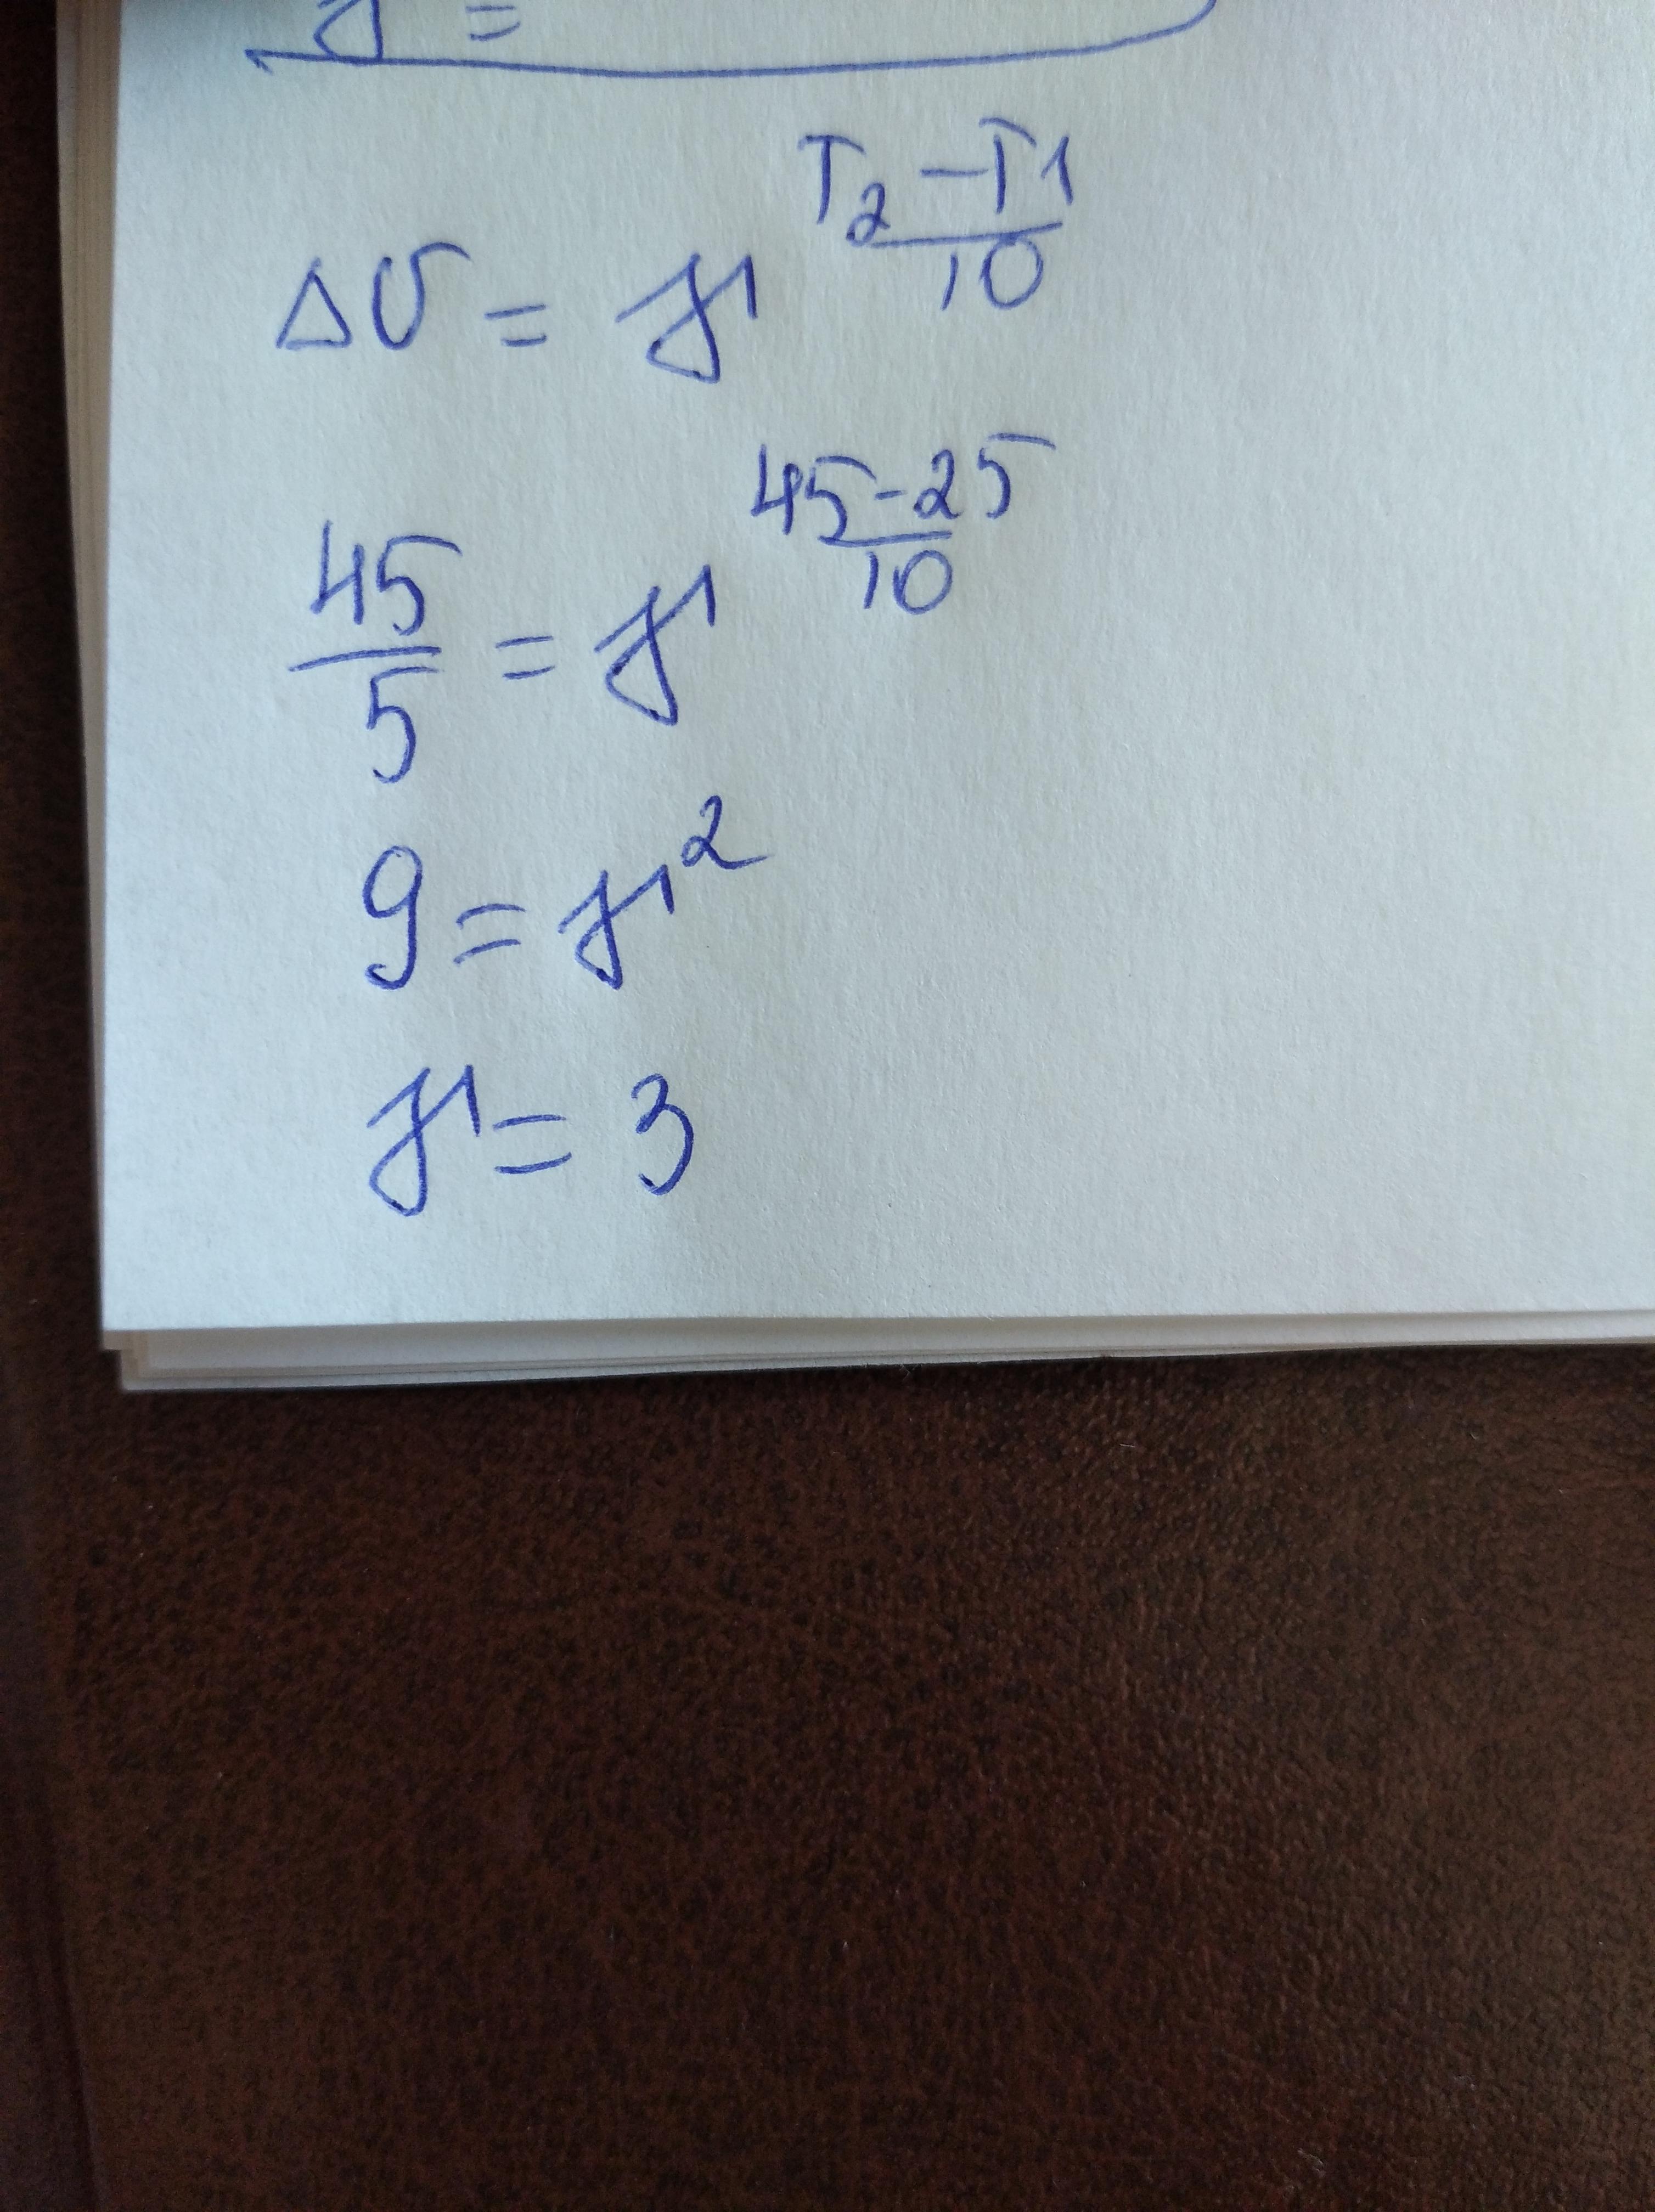 γ =
Δυ = γ^((T₂ - T1)/10)
45/5 = γ^((45-25)/10)
9 = γ²
γ = 3